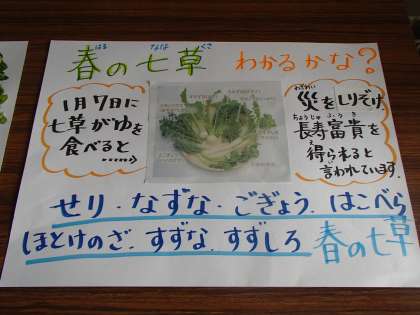 春の七草 わかるかな?
はる ななくさ
1月7日に
七草がゆを
食べると
わざわい
災をしりぞけ
ちょうじゅ ふうき
長寿富貴を
え
得られると
言われています。
せり・なずな・ごぎょう.はこべら
ほとけのざ.すずな.すずしろ 春の七草